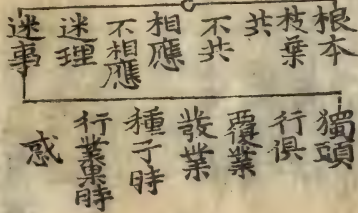 根本
枝葉
共
不共
相應
不相應
迷理
迷事
獨頭
行俱
覆業
發業
種子時
行業果時
惑